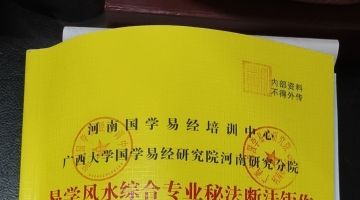 内部资料
不得外传
河南国学易经培训中心
广西大学国学易经研究院河南研究分院
易学风水综合专业秘法断法